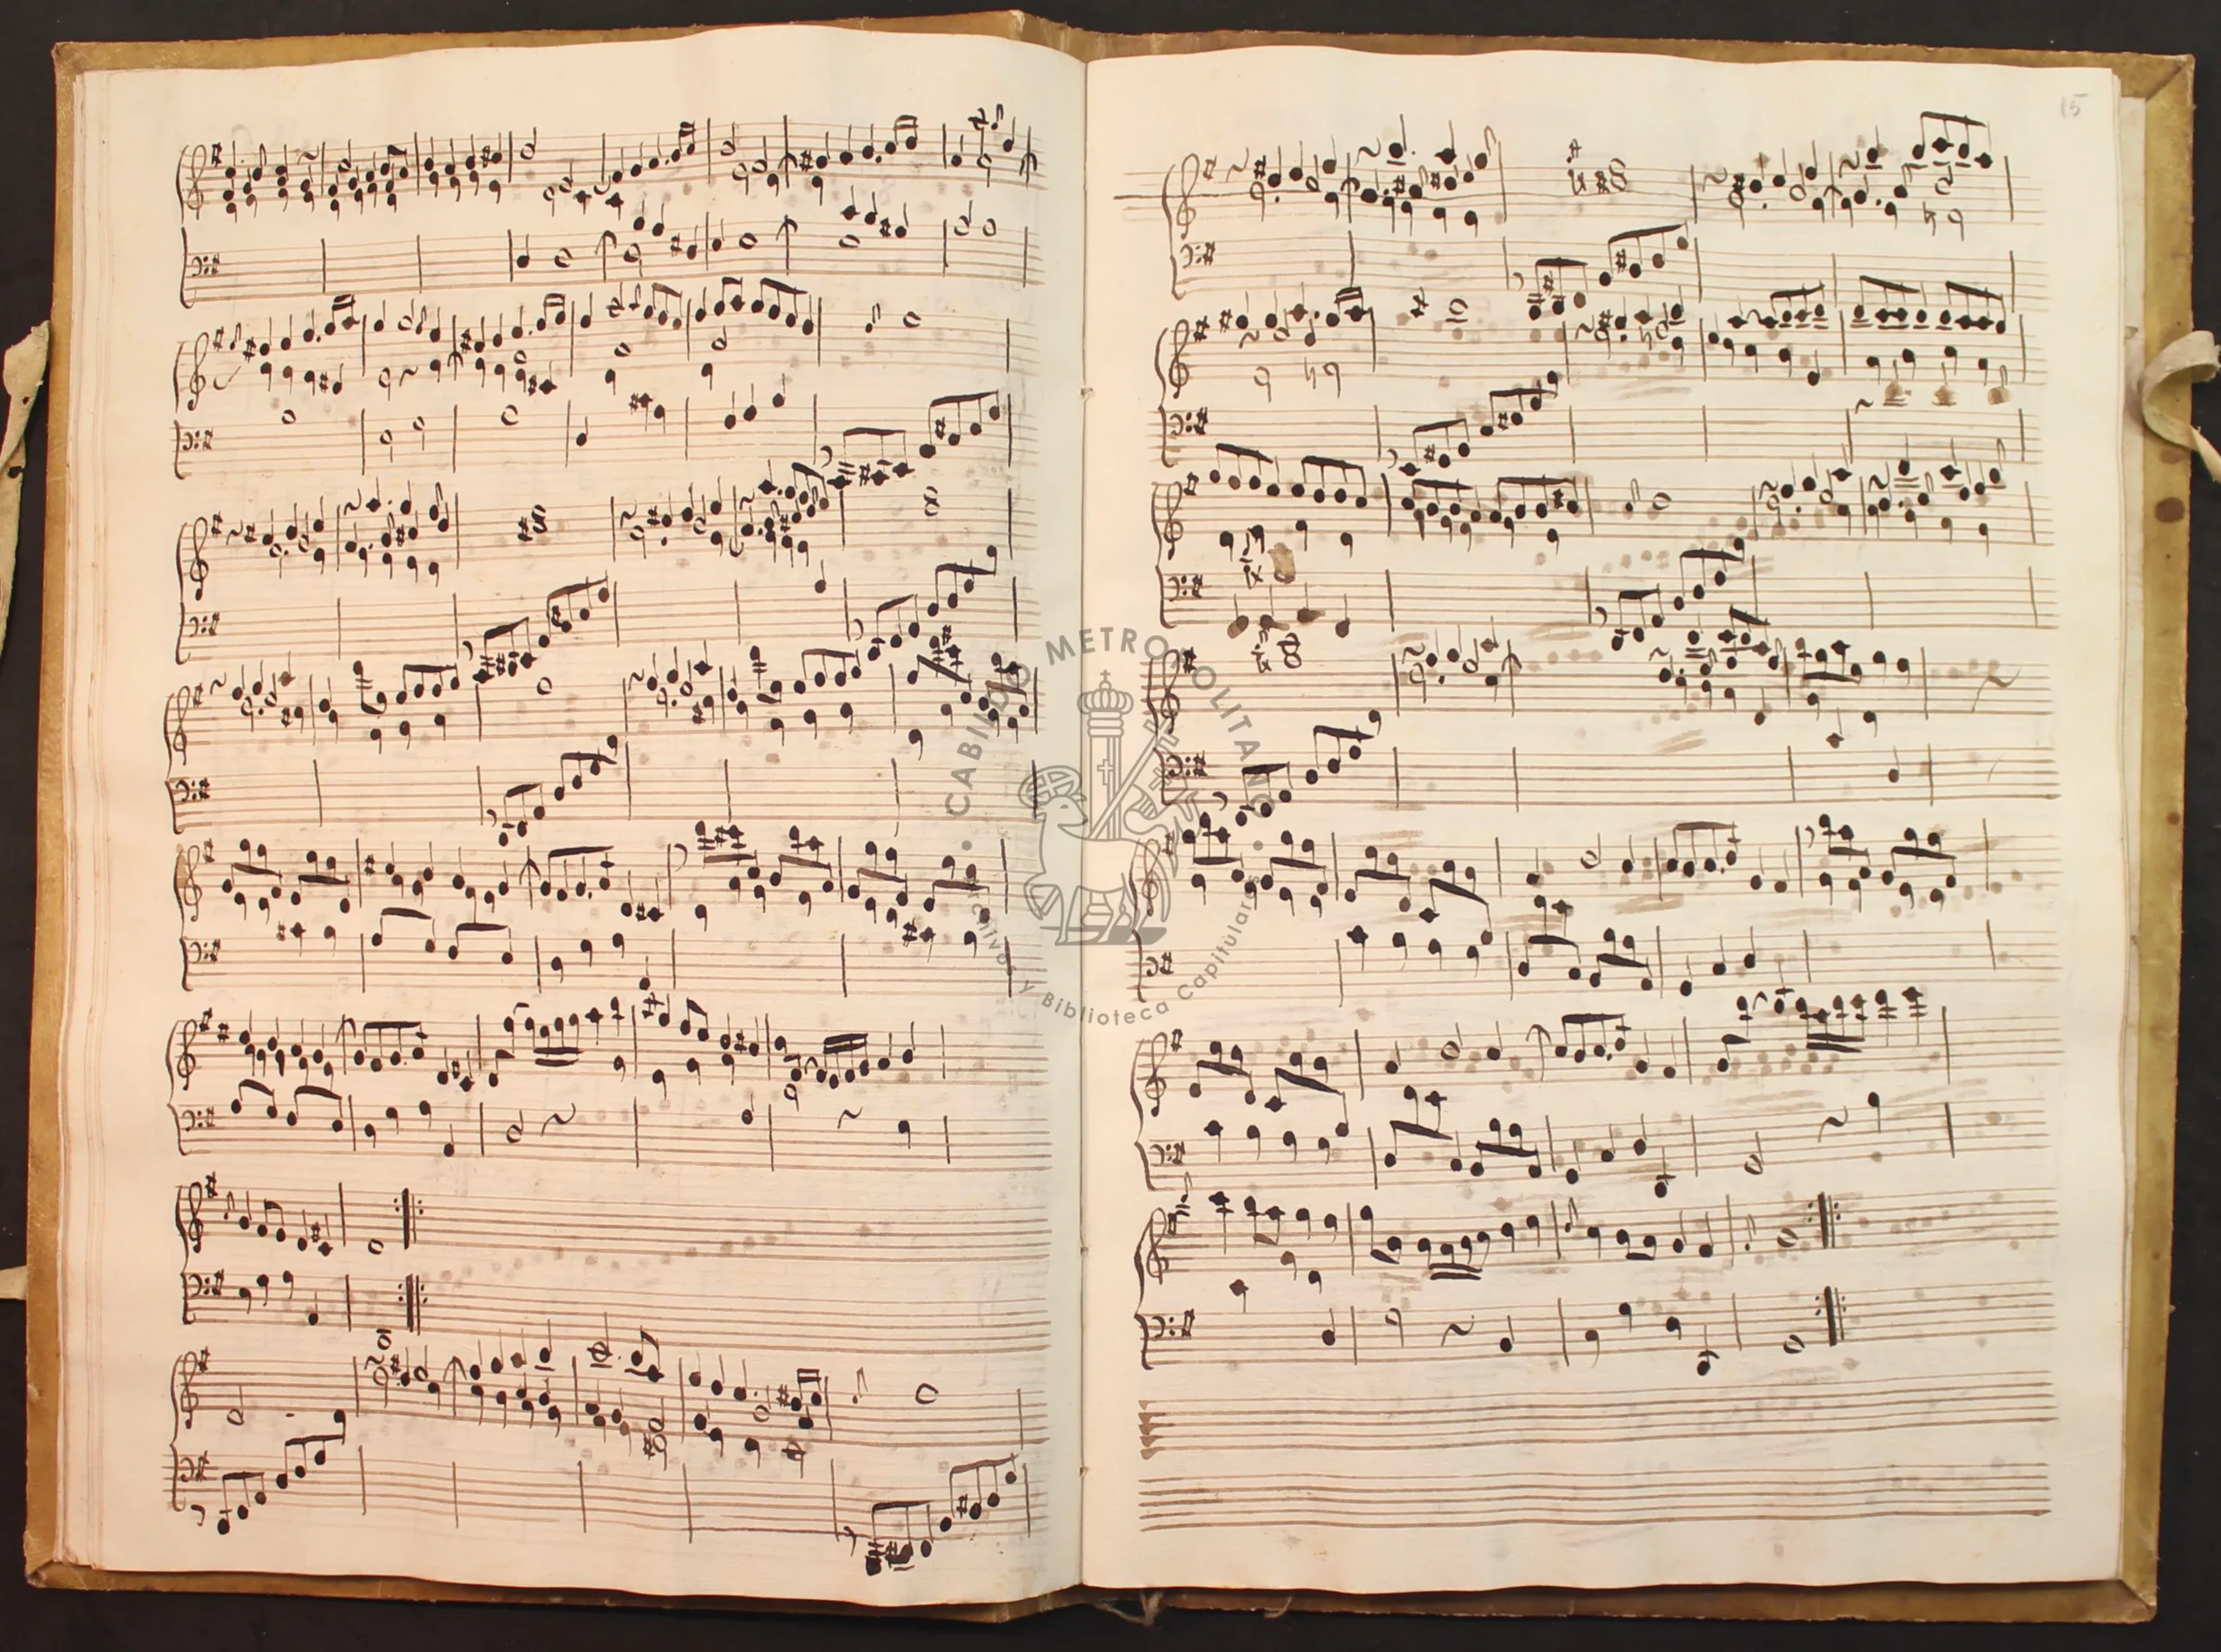 15
CABILDO METROPOLITANO
Archivo y Biblioteca Capitular